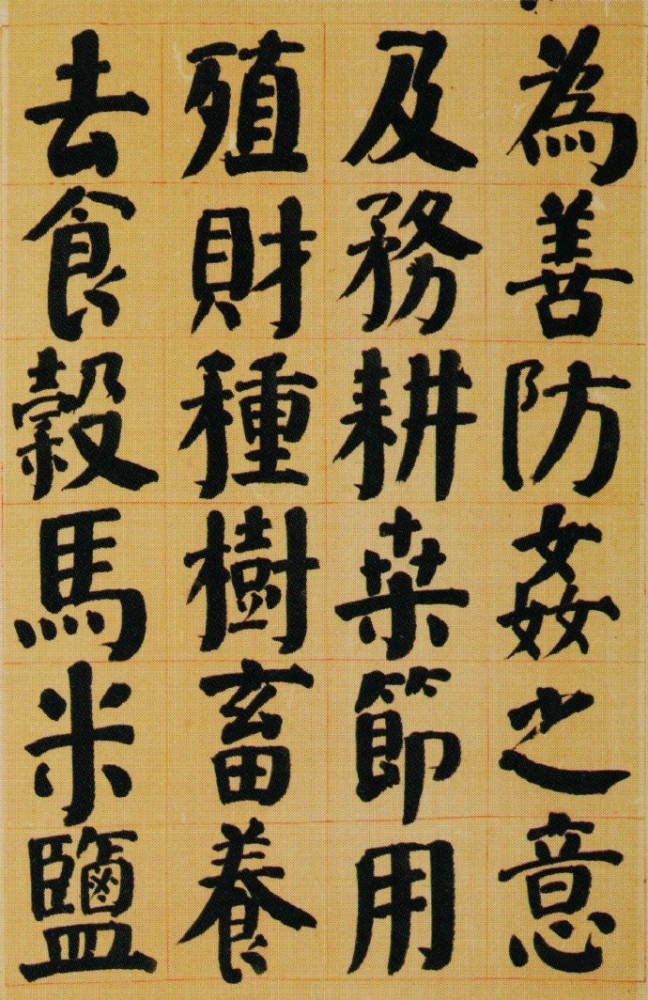 為善防姦之意
及務耕桒節用
殖財種樹畜養
去食糓馬米鹽